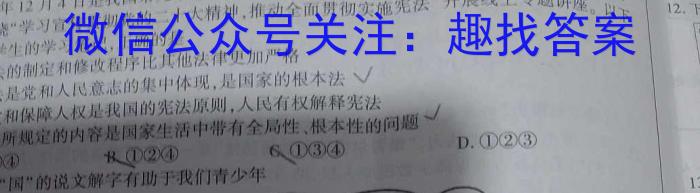 年12月4日是我国
大精神,推动全面贯彻实施宪法
开展线上专题讲座。以下
12.下
微信公众号关注：趣找答案
学生的学习
的制定和修改程序比其他法律更加严格
是党和人民意志的集中体现,是国家的根本法
和保障人权是我国的宪法原则,人民有权解释宪法
所规定的内容是国家生活中带有全局性、根本性的问题
④ B.①②④ C.①③④ D.①②③
“国”的说文解字有助于我们青少年